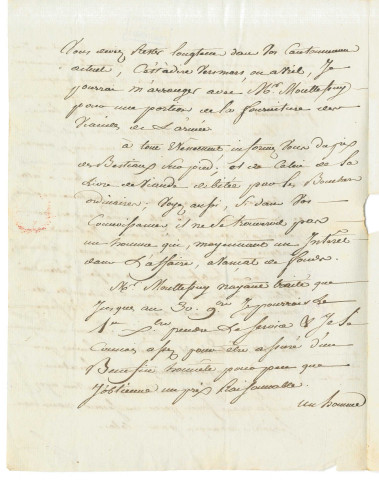 Vous devez rester longtems dans vos Cantonnemens
actuel, C'est à dire vers mars, ou avril, Je
pourrai m'arranger avec Mr. Moultessuy
pour une portion de la fourniture des
Viandes de L'armée
à tout Evenement informez Vous du prix
des Bestiaux sur pied, et de Celui de la
Livre de Viande débitée pour les Bouchers
ordinaires; Voyez aussi, Si dans Vos
Connoissances il ne Se trouveroit pas
un homme qui, moyennant un Interet
dans L'affaire, avancat de fonds.
Mr. Moultessuy n'ayant traité que
Jusques au 30. 9bre Je pourrois le
1er Xbre prendre Le Service & Je le
Connois assez pour être assuré d'un
Benefice honnete pour peu que
J'obtienne un prix Raisonnable.
un homme